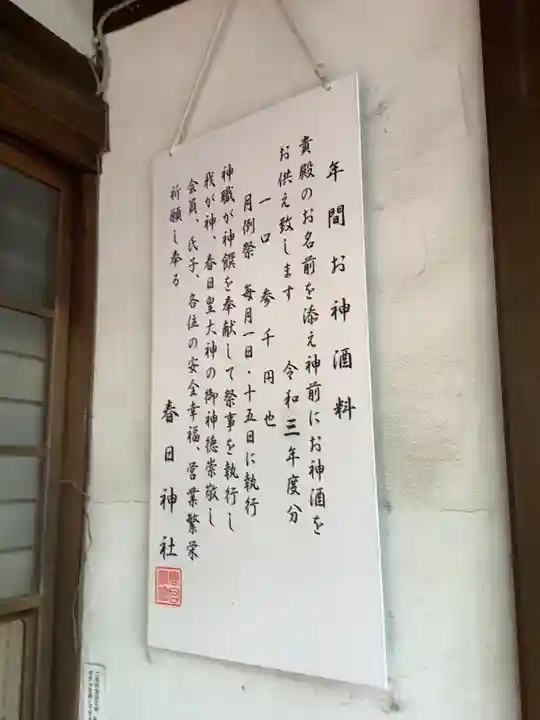 年間お神酒料
貴殿のお名前を添え神前にお神酒を
お供え致します 令和三年度分
一口 参千円也
月例祭 毎月一日・十五日に執行
神職が神饌を奉献して祭事を執行し
我が神、春日皇大神の御神徳崇敬し
会員、氏子、各位の安全幸福、営業繁栄
祈願し奉る
春日神社